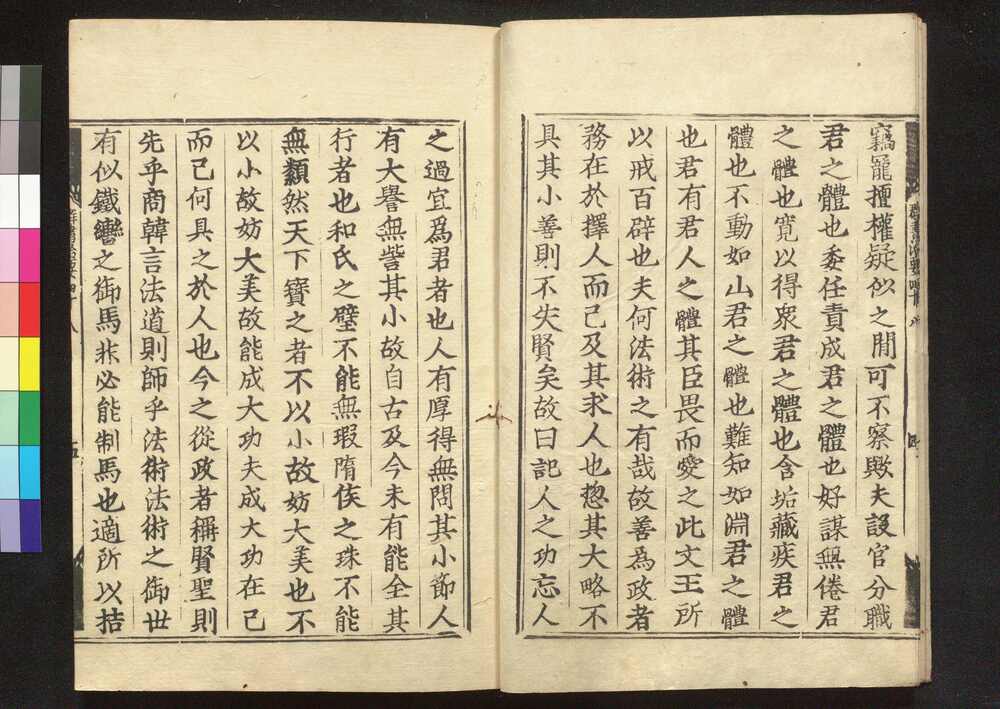 竊寵擅權疑似之間可不察歟夫設官分職
君之體也委任責成君之體也好謀無倦君
之體也寬以得衆君之體也含垢藏疾君之
體也不動如山君之體也難知如淵君之體
也君有君人之體其臣畏而愛之此文王所
以戒百辟也夫何法術之有哉故善為政者
務在於擇人而已及其求人也揔其大略不
具其小善則不失賢矣故曰記人之功忘人
之過宜爲君者也人有厚得無問其小節人
有大譽無訾其小故自古及今未有能全其
行者也和氏之璧不能無瑕隋侯之珠不能
無纇然天下寶之者不以小故妨大美也不
以小故妨大美故能成大功夫成大功在己
而已何具之於人也今之從政者稱賢聖則
先乎商韓言法道則師乎法術法術之御世
有似鐵轡之御馬非必能制馬也適所以拮